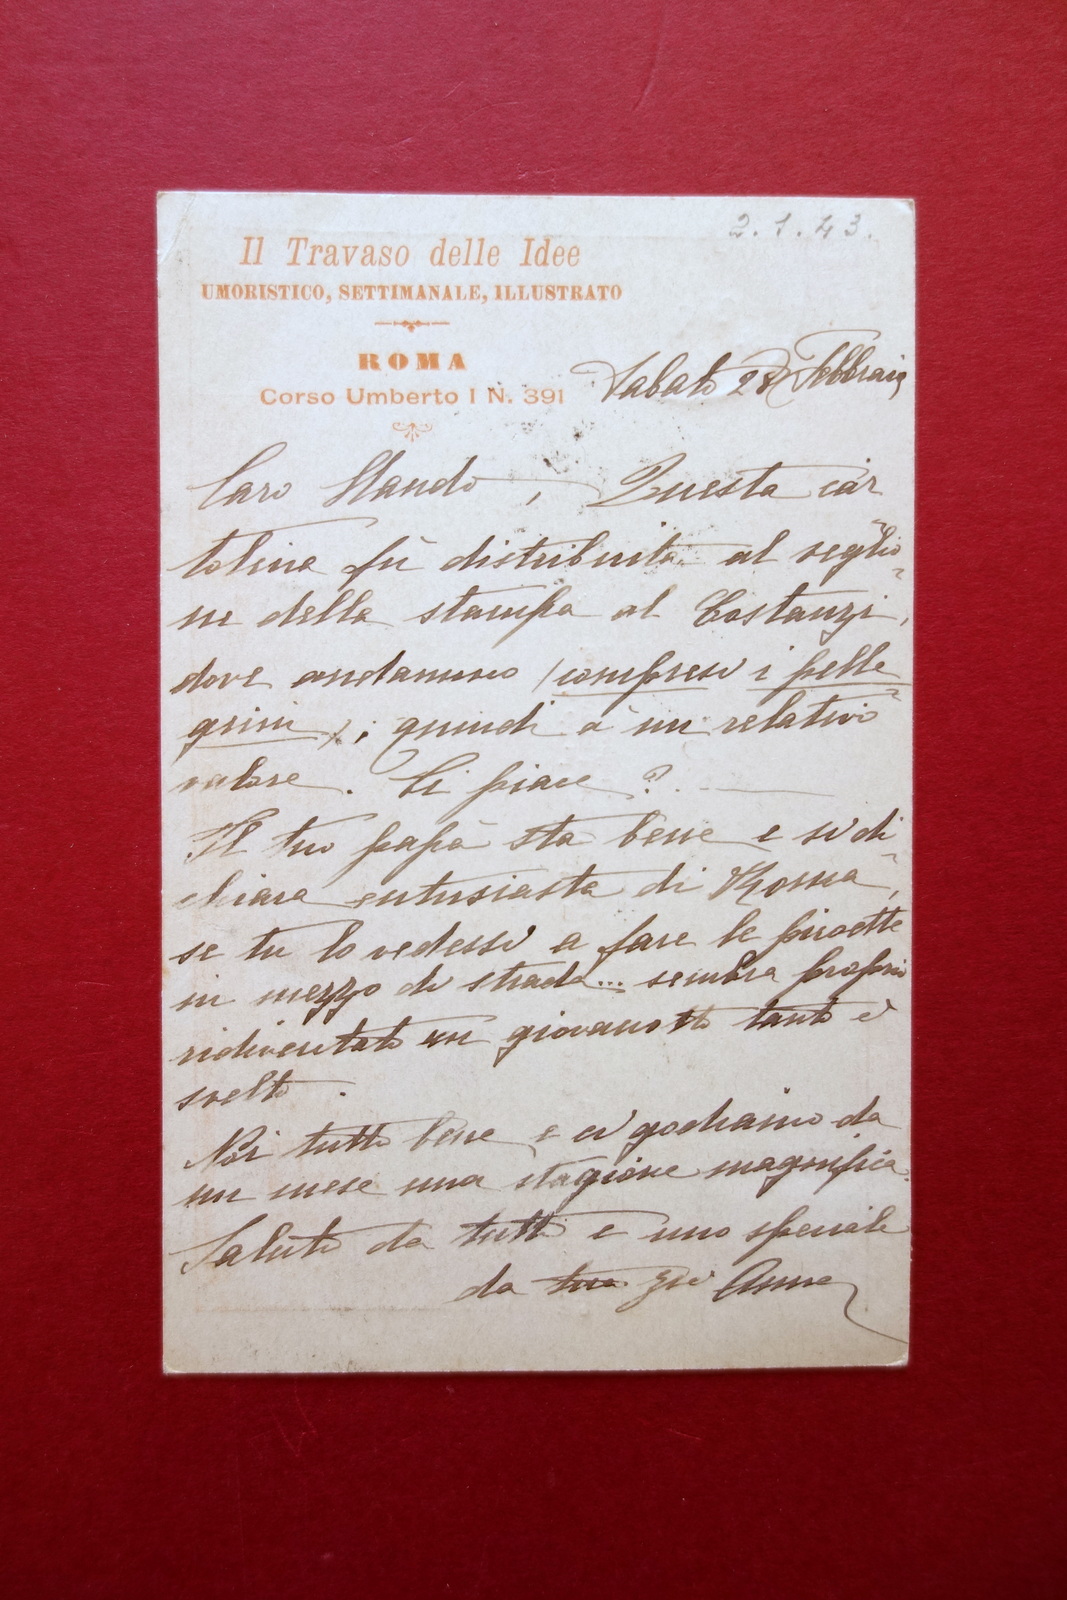 2.1.43.
Il Travaso delle Idee
UMORISTICO, SETTIMANALE, ILLUSTRATO
ROMA
Corso Umberto I N. 391
Sabato 28 Febbraio
Caro Nando, Questa car
tolina fù distribuita al veglio
ne della stampa al Costanzi,
dove andammo (compresi i pelle
grini); quindi à un relativo
valore. Ti piace?
Il tuo papà sta bene e si di
chiara entusiasta di Roma,
se tu lo vedessi a fare le piroette
in mezzo di strada... sembra proprio
ridiventato un giovanotto tanto è
svelto.
Noi tutti bene e ci godiamo da
un mese una stagione magnifica.
Saluti da tutti e uno speciale
da tua Zia Anna